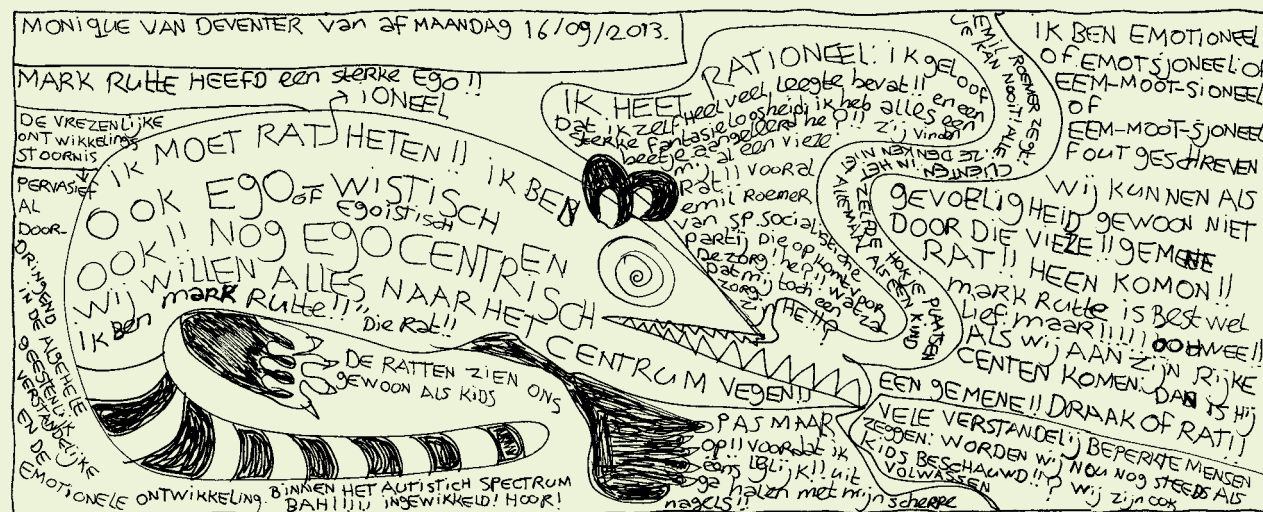 MONIQUE VAN DEVENTER van af MAANDAG 16/09/2013.
MARK Rutte HEEFD een sterke Ego!!
IONEEL
DE VREZENLIJKE
ONTWIKKELINGS
STOORNIS
PERVASIEF
AL
DOOR-
DRINGEND
IN DE ALGEHELE
GEESTENLIJK
VERSTANDELIJKE
EN DE
EMOTIONELE ONTWIKKELING. BINNEN HET AUTISTICH SPECTRUM
BAH!!!!, INGEWIKKELD! HOOR!
IK MOET RAT HETEN!! IK BEN
OOK EGO OF WISTISCH
EGOISTISCH
OOK!! NOG EGOCENTREN
WIJ WILLEN ALLES NAAR HET
CENTRISCH
CENTRUM VEGEN!!
IK Ben mark Rutte!!
Die Rat!!
DE RATTEN ZIEN ONS
GEWOON ALS KIDS
IK HEET RATIONEEL: IK geloof
Dat ik zelf Heel veel leegte bevat!! en een
sterke fantasieloosheid: ik heb alles een
beetje aangeleerd he?!! zij vinden
mij al een vieze
Rat!! vooral
emil Roemer
van SP. Socialistiche
partij Die opkomt voor
De zorg! he?!! wat zal
Dat mij toch een
zorg!
zijn HE!!?
EMIL ROEMER ZEGT:
JE KAN NOOIT ALLE
CLIENTEN IN HET
ZE DENKEN NIET
ALLEMAAL ALS EEN KIND
IK BEN EMOTIONEEL
OF EMOTSJONEEL OF
EEM-MOOT-SIONEEL
OF
EEM-MOOT-SJONEEL
FOUT GESCHREVEN
WIJ KUNNEN ALS
GEVOELIGHEID GEWOON NIET
DOOR DIE VIEZE!! GEMENE
RAT!! HEEN KOMON!!
mark Rutte is Best wel
Lief maar!!!!! OOHWEE!!
ALS WIJ AAN ZIJN RIJKE
CENTEN KOMEN: DAN is Hij
EEN GEMENE!! DRAAK OF RAT!!
VELE VERSTANDELIJ BEPERKTE MENSEN
ZEGGEN: WORDEN WIJ NOU NOG STEEDS ALS
KIDS BESCHAUWD!!? WIJ ZIJN OOK
VOLWASSEN
PAS MAAR
OP!! voordat ik
eens lelijk!! uit
ga halen met mijn scherpe
nagels!!